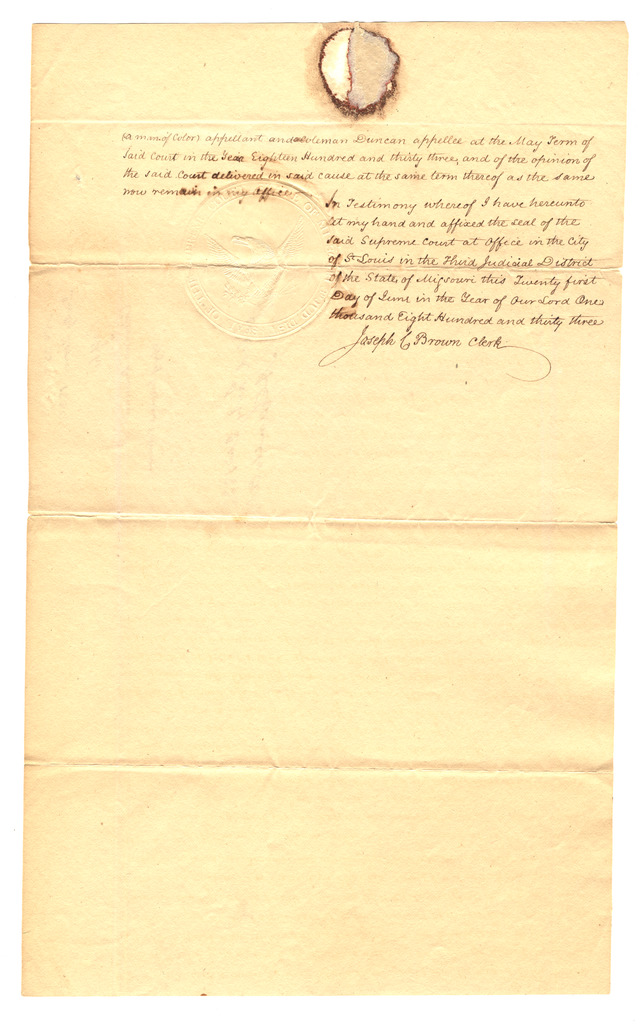 (a man of Color) appellant and Coleman Duncan appellee at the May Term of
Said Court in the Year Eighteen Hundred and thirty three, and of the opinion of
the said Court delivered in said cause at the same term thereof as the same
now remain in my office.
In Testimony whereof I have hereunto
set my hand and affixed the seal of the
said Supreme Court at Office in the City
of St Louis in the Third Judicial District
of the State of Missouri this Twenty first
Day of June in the Year of Our Lord One
thousand Eight Hundred and thirty three
Joseph C Brown Clerk